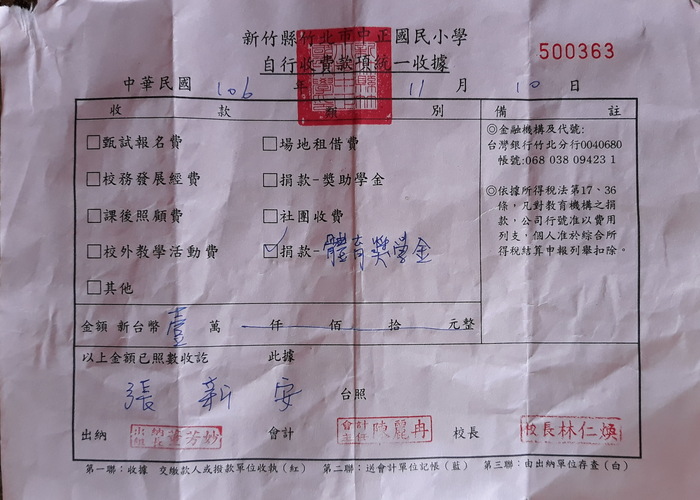 新竹縣竹北市中正國民小學
自行收費款項統一收據
500363
中華民國 106 年 11 月 10 日
收 款 類 別
□甄試報名費 □場地租借費
□校務發展經費 □捐款-獎助學金
□課後照顧費 □社團收費
□校外教學活動費 ☑捐款-體育獎學金
□其他
備 註
◎金融機構及代號:
台灣銀行竹北分行0040680
帳號:068 038 09423 1
◎依據所得稅法第17、36
條，凡對教育機構之捐
款，公司行號准以費用
列支，個人准於綜合所
得稅結算申報列舉扣除。
金額 新台幣 壹 萬 仟 佰 拾 元整
以上金額已照數收訖 此據
張 新 安 台照
出納 出納組長 葉芳妙 會計 會計主任 陳麗冉 校長 校長林仁煥
第一聯：收據 交繳款人或撥款單位收執（紅） 第二聯：送會計單位記帳（藍） 第三聯：由出納單位存查（白）